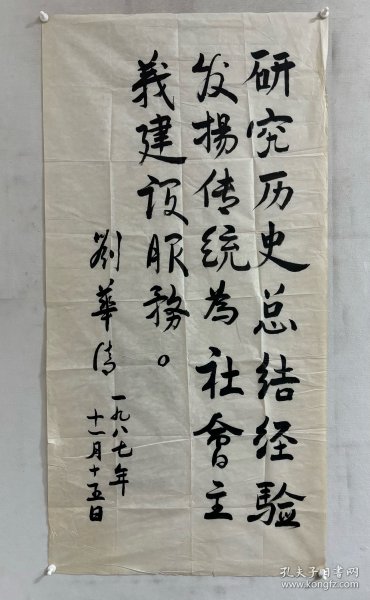 研究历史总结经验
发揚传统為社會主
義建设服務。
劉華清
一九八七年
十一月十五日
孔夫子旧书网
www.kongfz.com